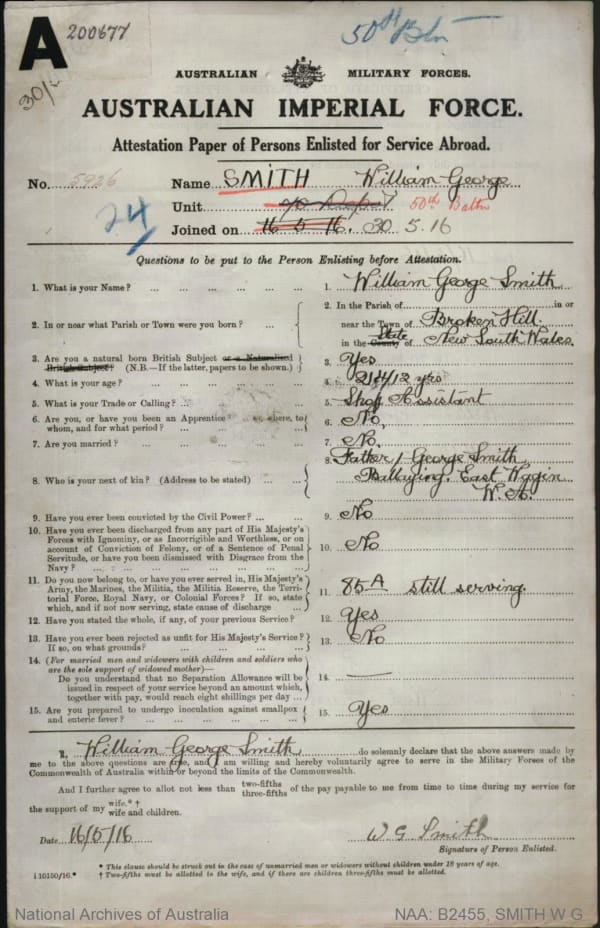 A
200677
50th Btn
30/-
AUSTRALIAN MILITARY FORCES.
AUSTRALIAN IMPERIAL FORCE.
Attestation Paper of Persons Enlisted for Service Abroad.
No. 5926 Name SMITH William George
24 Unit 50th Battn
Joined on 16 5 16. 30 5.16
Questions to be put to the Person Enlisting before Attestation.
1. What is your Name? ... 1. William George Smith
2. In or near what Parish or Town were you born? ... 2. In the Parish of in or
near the Town of Broken Hill.
in the County State of New South Wales.
3. Are you a natural born British Subject or a Naturalised
British Subject? (N.B.—If the latter, papers to be shown.) 3. Yes
4. What is your age? 4. 21 4/12 yrs
5. What is your Trade or Calling? 5. Shop Assistant
6. Are you, or have you been an Apprentice? If so, where, to
whom, and for what period? 6. No.
7. Are you married? 7. No.
8. Who is your next of kin? (Address to be stated) 8. Father / George Smith
Ballaying, East Wagin
W.A.
9. Have you ever been convicted by the Civil Power? 9. No
10. Have you ever been discharged from any part of His Majesty's
Forces with Ignominy, or as Incorrigible and Worthless, or on
account of Conviction of Felony, or of a Sentence of Penal
Servitude, or have you been dismissed with Disgrace from the
Navy? 10. No
11. Do you now belong to, or have you ever served in, His Majesty's
Army, the Marines, the Militia, the Militia Reserve, the Terri-
torial Force, Royal Navy, or Colonial Forces? If so, state
which, and if not now serving, state cause of discharge 11. 85-A still serving.
12. Have you stated the whole, if any, of your previous Service? 12. Yes
13. Have you ever been rejected as unfit for His Majesty's Service?
If so, on what grounds? 13. No
14. (For married men and widowers with children and soldiers who
are the sole support of widowed mother)—
Do you understand that no Separation Allowance will be
issued in respect of your service beyond an amount which,
together with pay, would reach eight shillings per day 14. —
15. Are you prepared to undergo inoculation against smallpox
and enteric fever? 15. Yes
I, William George Smith do solemnly declare that the above answers made by
me to the above questions are true, and I am willing and hereby voluntarily agree to serve in the Military Forces of the
Commonwealth of Australia within or beyond the limits of the Commonwealth.
And I further agree to allot not less than two-fifths three-fifths of the pay payable to me from time to time during my service for
the support of my wife.* † wife and children.
Date 16/5/16 W G Smith
Signature of Person Enlisted.
* This clause should be struck out in the case of unmarried men or widowers without children under 18 years of age.
i 10150/16.* † Two-fifths must be allotted to the wife, and if there are children three-fifths must be allotted.
National Archives of Australia NAA: B2455, SMITH W G